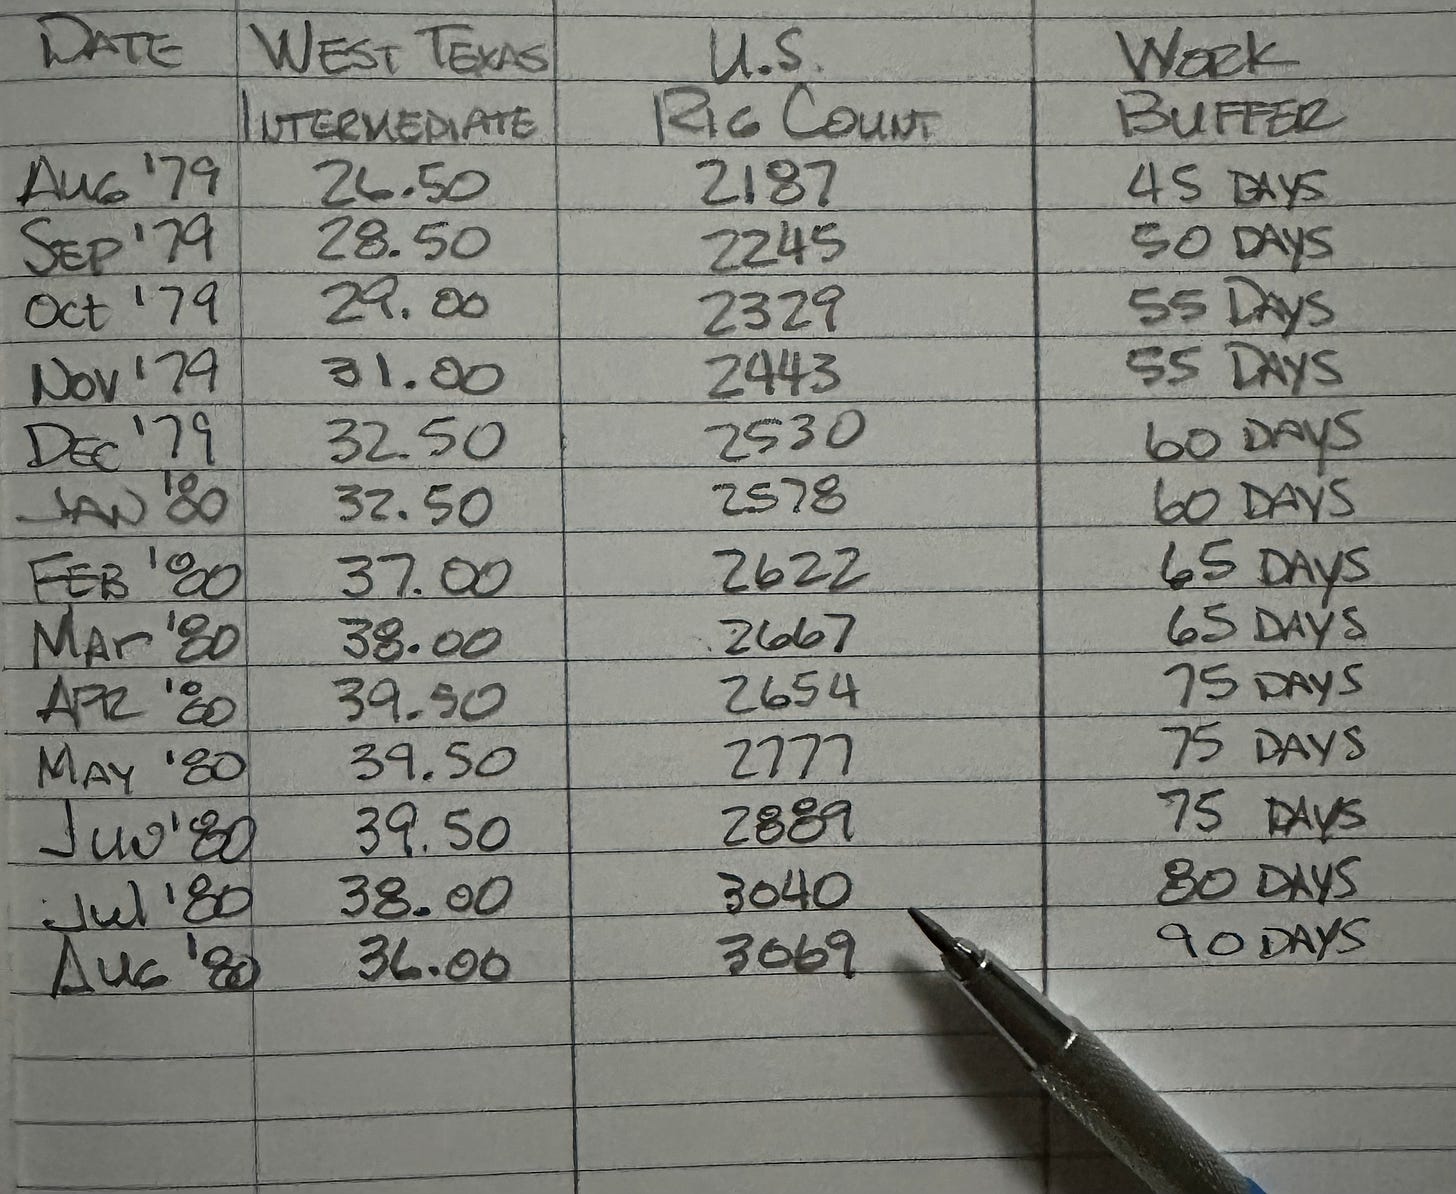 DATE WEST TEXAS U.S. WORK
INTERMEDIATE RIG COUNT BUFFER
AUG '79 26.50 2187 45 DAYS
SEP '79 28.50 2245 50 DAYS
Oct '79 29.00 2329 55 DAYS
Nov '79 31.00 2443 55 DAYS
DEC '79 32.50 2530 60 DAYS
JAN '80 32.50 2578 60 DAYS
FEB '80 37.00 2622 65 DAYS
MAr '80 38.00 2667 65 DAYS
APR '80 39.50 2654 75 DAYS
MAY '80 39.50 2777 75 DAYS
JUN '80 39.50 2889 75 DAYS
Jul '80 38.00 3040 80 DAYS
AUG '80 36.00 3069 90 DAYS